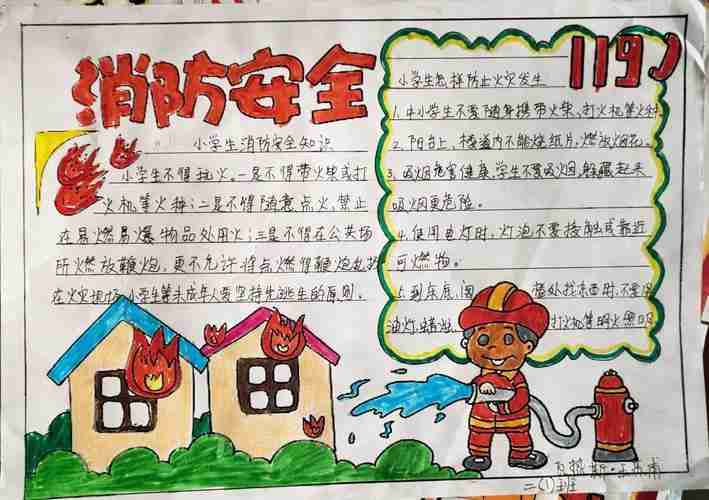 消防安全
小学生消防安全知识
小学生不得玩火。一是不得带火柴或打
火机等火种；二是不得随意点火，禁止
在易燃易爆物品处用火；三是不得在公共场
所燃放鞭炮，更不允许将点燃得鞭炮乱扔
在火灾现场，小学生等未成年人要坚持先逃生的原则。
119
小学生怎样防止火灾发生
1.中小学生不要随身携带火柴、打火机等火种
2.阳台上、楼道内不能烧纸片，燃放烟花。
3.吸烟危害健康，学生不要吸烟，躲藏起来
吸烟更危险。
4.使用电灯时，灯泡不要接触或靠近
可燃物。
5.到床底、阁 处找东西时，不要用
油灯、蜡烛、 打火机等明火照明
二(1)班